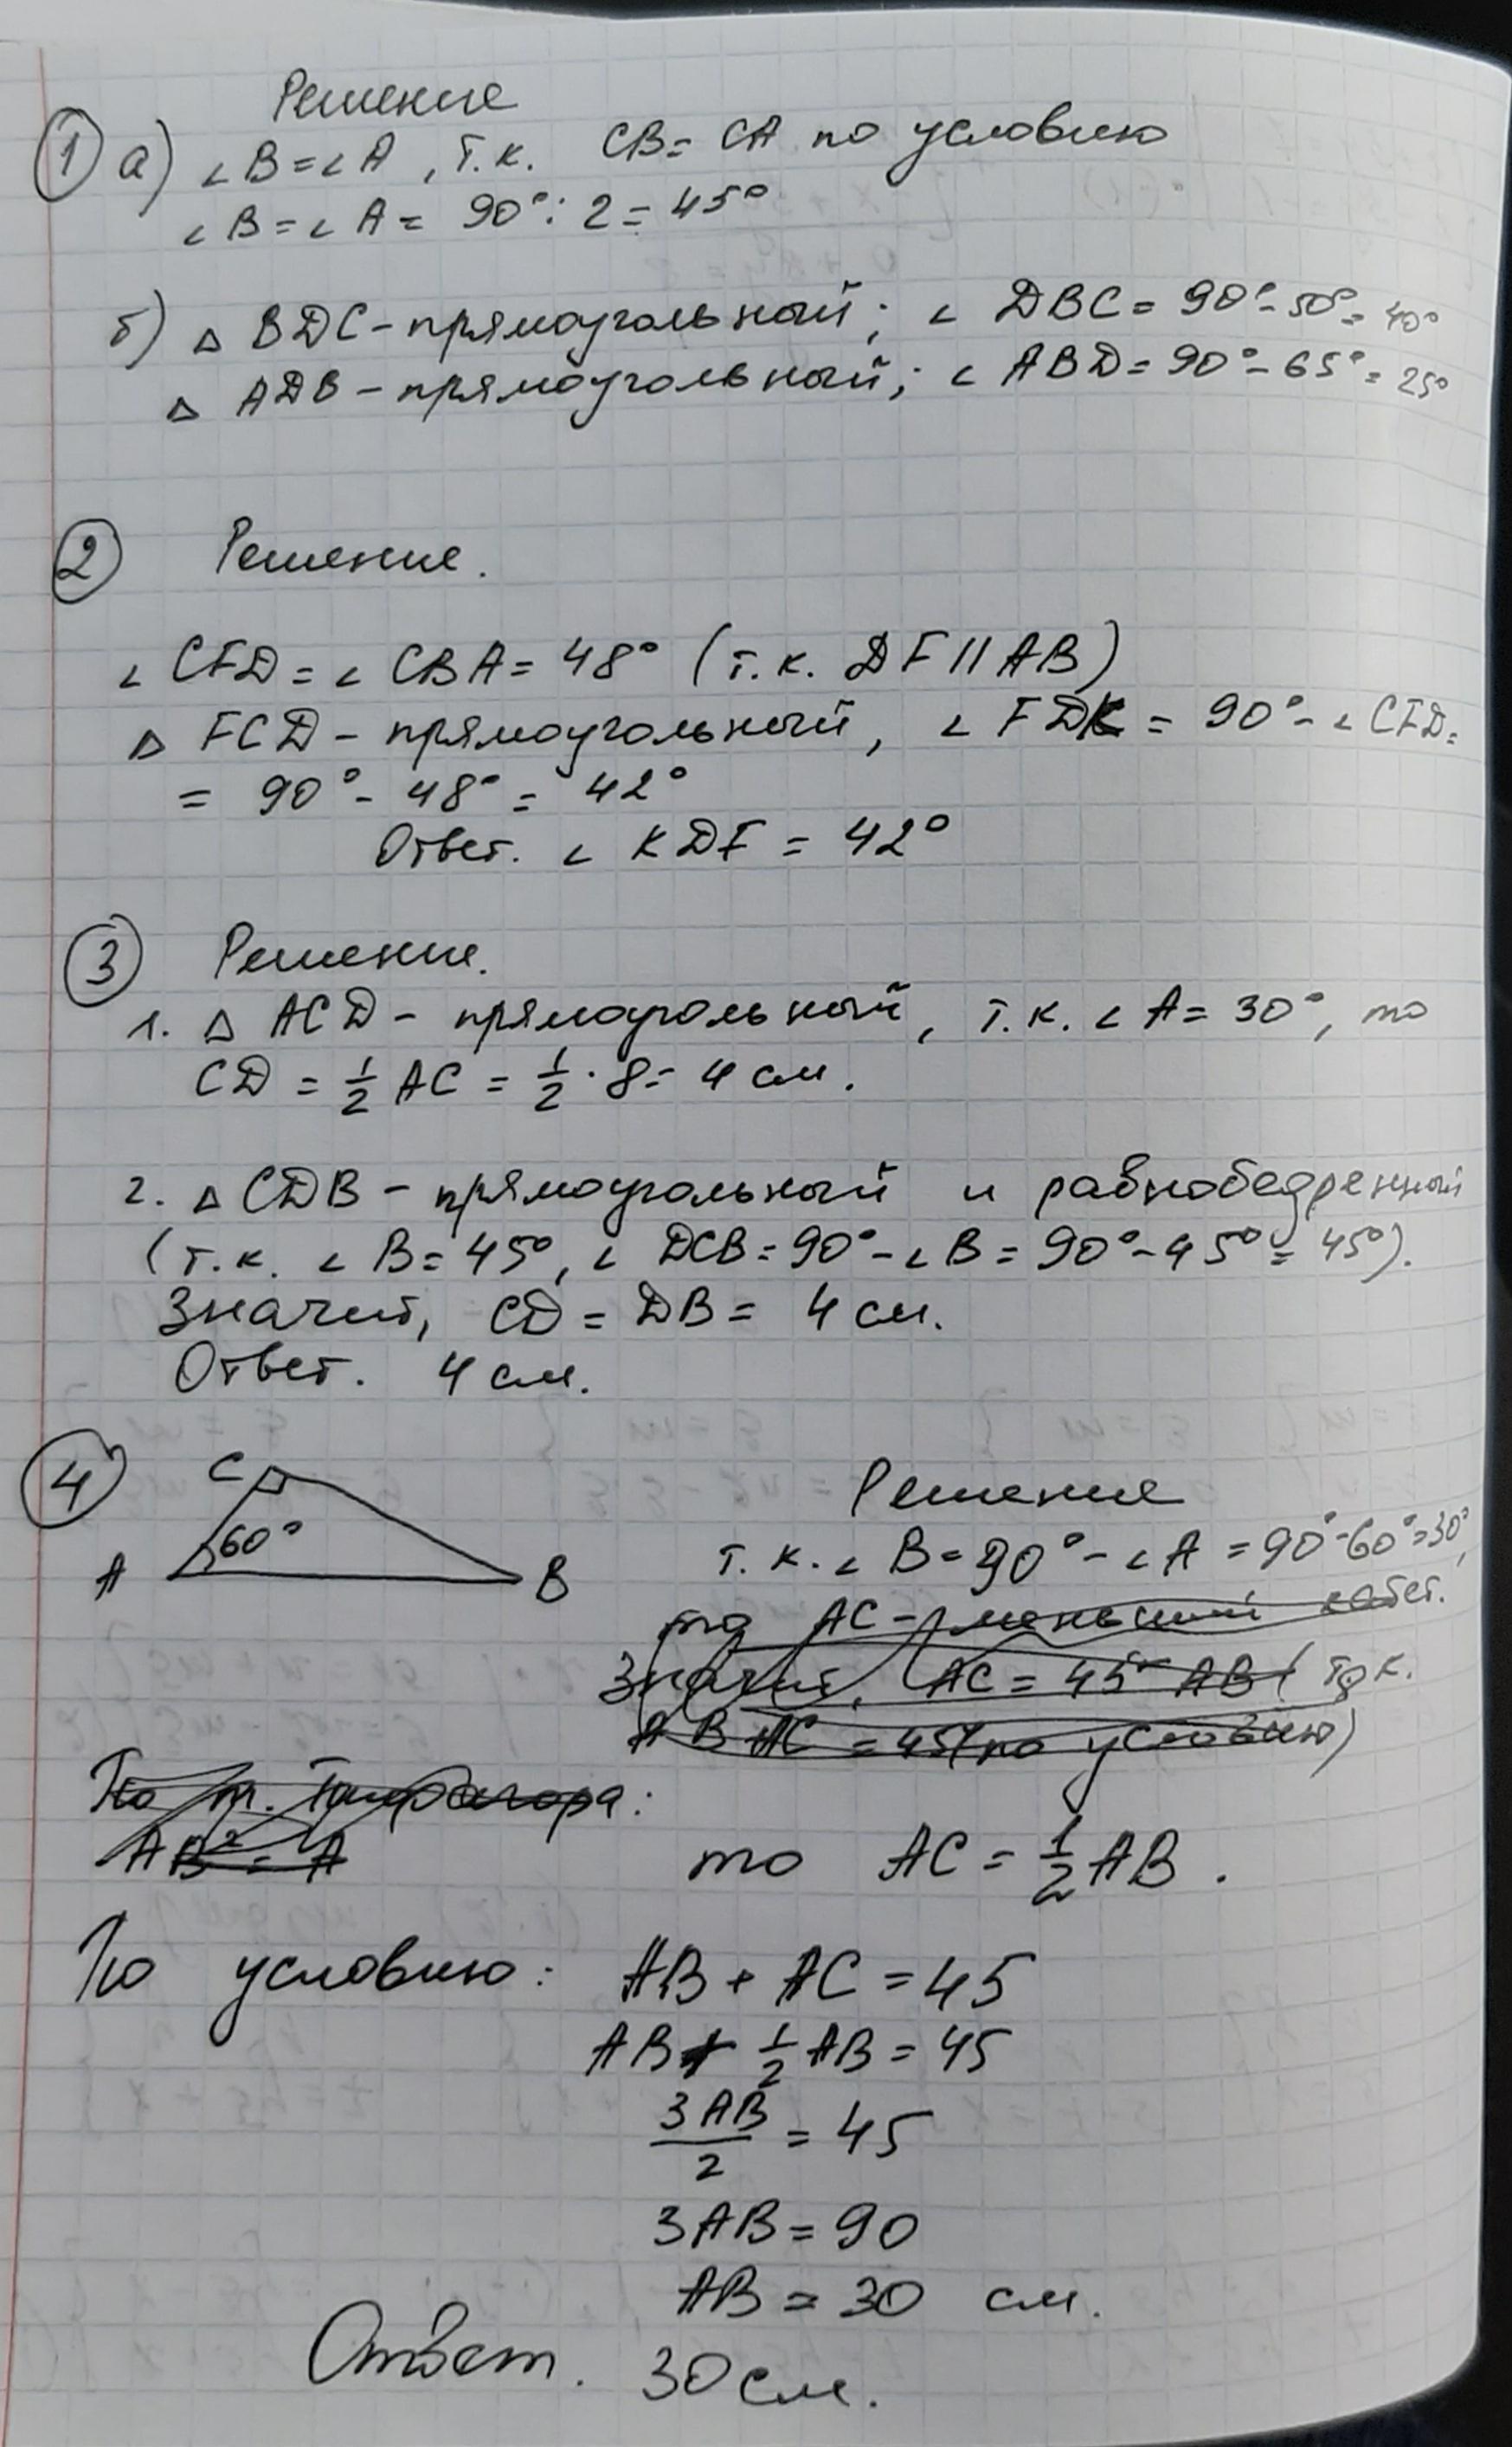 Решение
① а) ∠B=∠A, т.к. CB=CA по условию
∠B=∠A= 90°:2=45°
б) △ BDC-прямоугольный; ∠ DBC=90°-50°=40°
△ ADB-прямоугольный; ∠ ABD=90°-65°=25°
② Решение.
∠ CFD=∠ CBA=48° (т.к. DF∥AB)
△ FCD-прямоугольный, ∠ FDK=90°-∠ CFD=
= 90°-48°=42°
Ответ. ∠ KDF=42°
③ Решение.
1. △ ACD-прямоугольный, т.к. ∠ A=30°, то
CD=½ AC=½·8=4 см.
2. △ CDB-прямоугольный и равнобедренный
(т.к. ∠ B=45°, ∠ DCB=90°-∠ B=90°-45°=45°).
Значит, CD=DB=4 см.
Ответ. 4 см.
④ C
60°
A B
Решение
т.к. ∠ B=90°-∠ A=90°-60°=30°,
то AC- меньший катет.
Значит, AC=45- AB ( т.к.
AB+AC=45(по условию)
По т. Пифагора:
AB²=A
то AC=½AB.
По условию: AB+AC=45
AB+½AB=45
3AB/2=45
3AB=90
AB=30 см.
Ответ. 30 см.